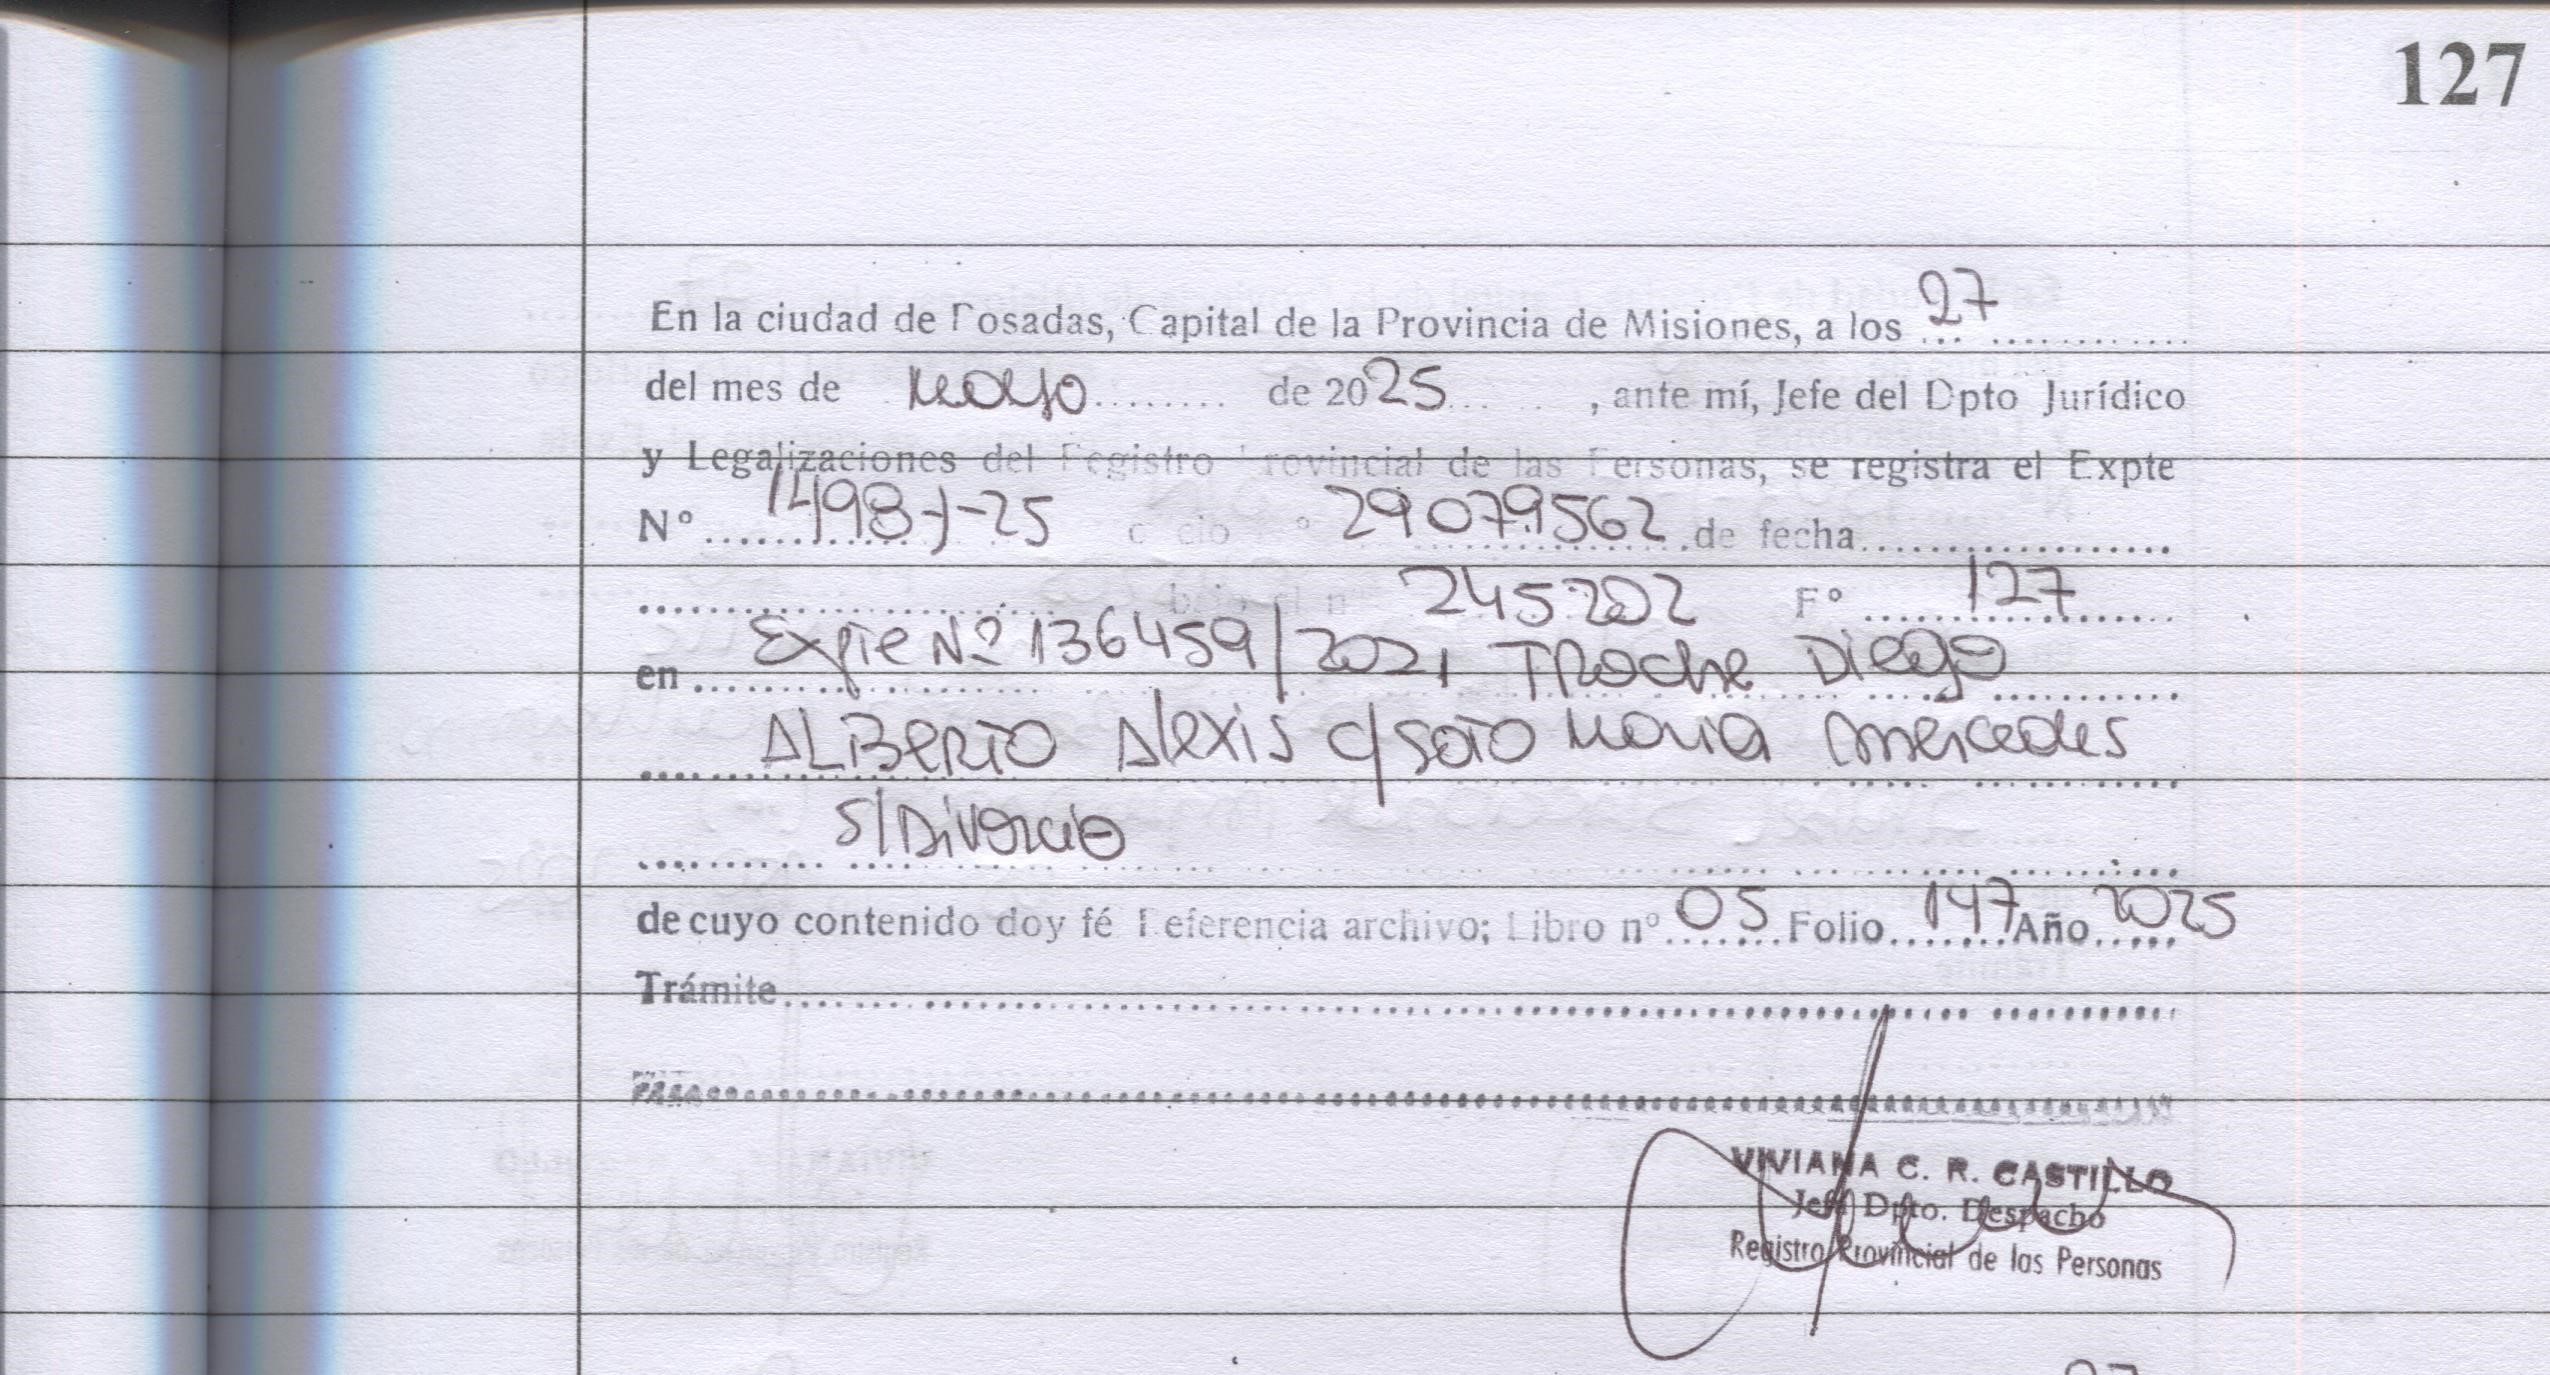 127
En la ciudad de Posadas, Capital de la Provincia de Misiones, a los 27
del mes de mayo de 2025 , ante mí, Jefe del Dpto Jurídico
y Legalizaciones del Registro Provincial de las Personas, se registra el Expte
Nº 1498-J-25 29079562 de fecha
bajo el nº 245202 Fº 127
en Expte Nº 136459/2021 Troche Diego
Alberto Alexis c/ Soto Maria Mercedes
s/Divorcio
de cuyo contenido doy fé Referencia archivo; Libro nº 05 Folio 147 Año 2025
Trámite
VIVIANA C. R. CASTILLO
Jefe Dpto. Despacho
Registro Provincial de las Personas
27